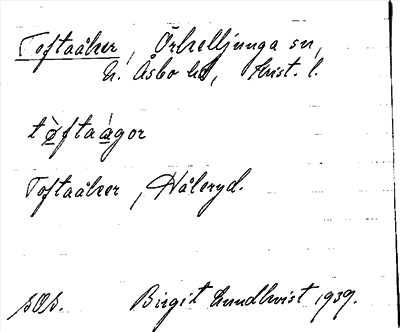 Toftaåker, Örkelljunga sn,
N. Åsbo hd, Krist. l.
tø̀ftaágor
Toftaåker, Håleryd.
Birgit Lundkvist 1939.